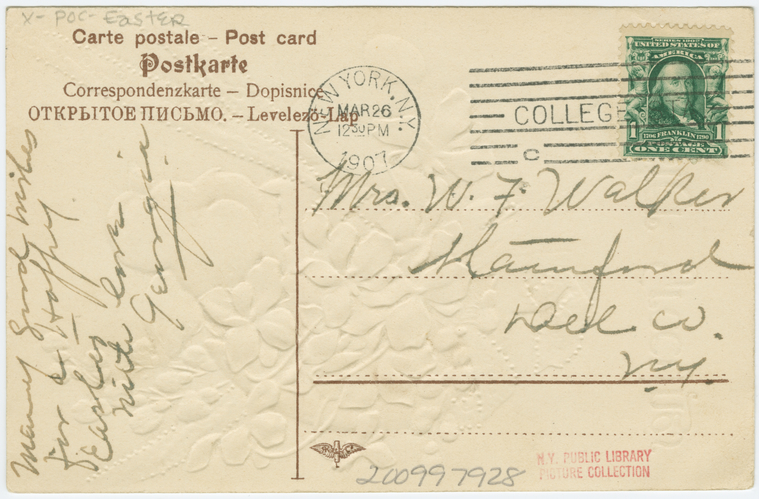 X- POC - EASTER
Carte postale – Post card
Postkarte
Correspondenzkarte – Dopisnice
ОТКРЫТОЕ ПИСЬМО. – Levelező-Lap
NEW YORK, N.Y.
MAR 26
12 30 PM
1907
COLLEGE
C
SERIES 1902
UNITED STATES OF
AMERICA
1 FRANKLIN 1
POSTAGE
ONE CENT
Many Good wishes
for a Happy
Easter
with love
Georgia.
Mrs. W. F. Walker
Stamford
Del. Co.
N.Y.
200997928
N.Y. PUBLIC LIBRARY
PICTURE COLLECTION